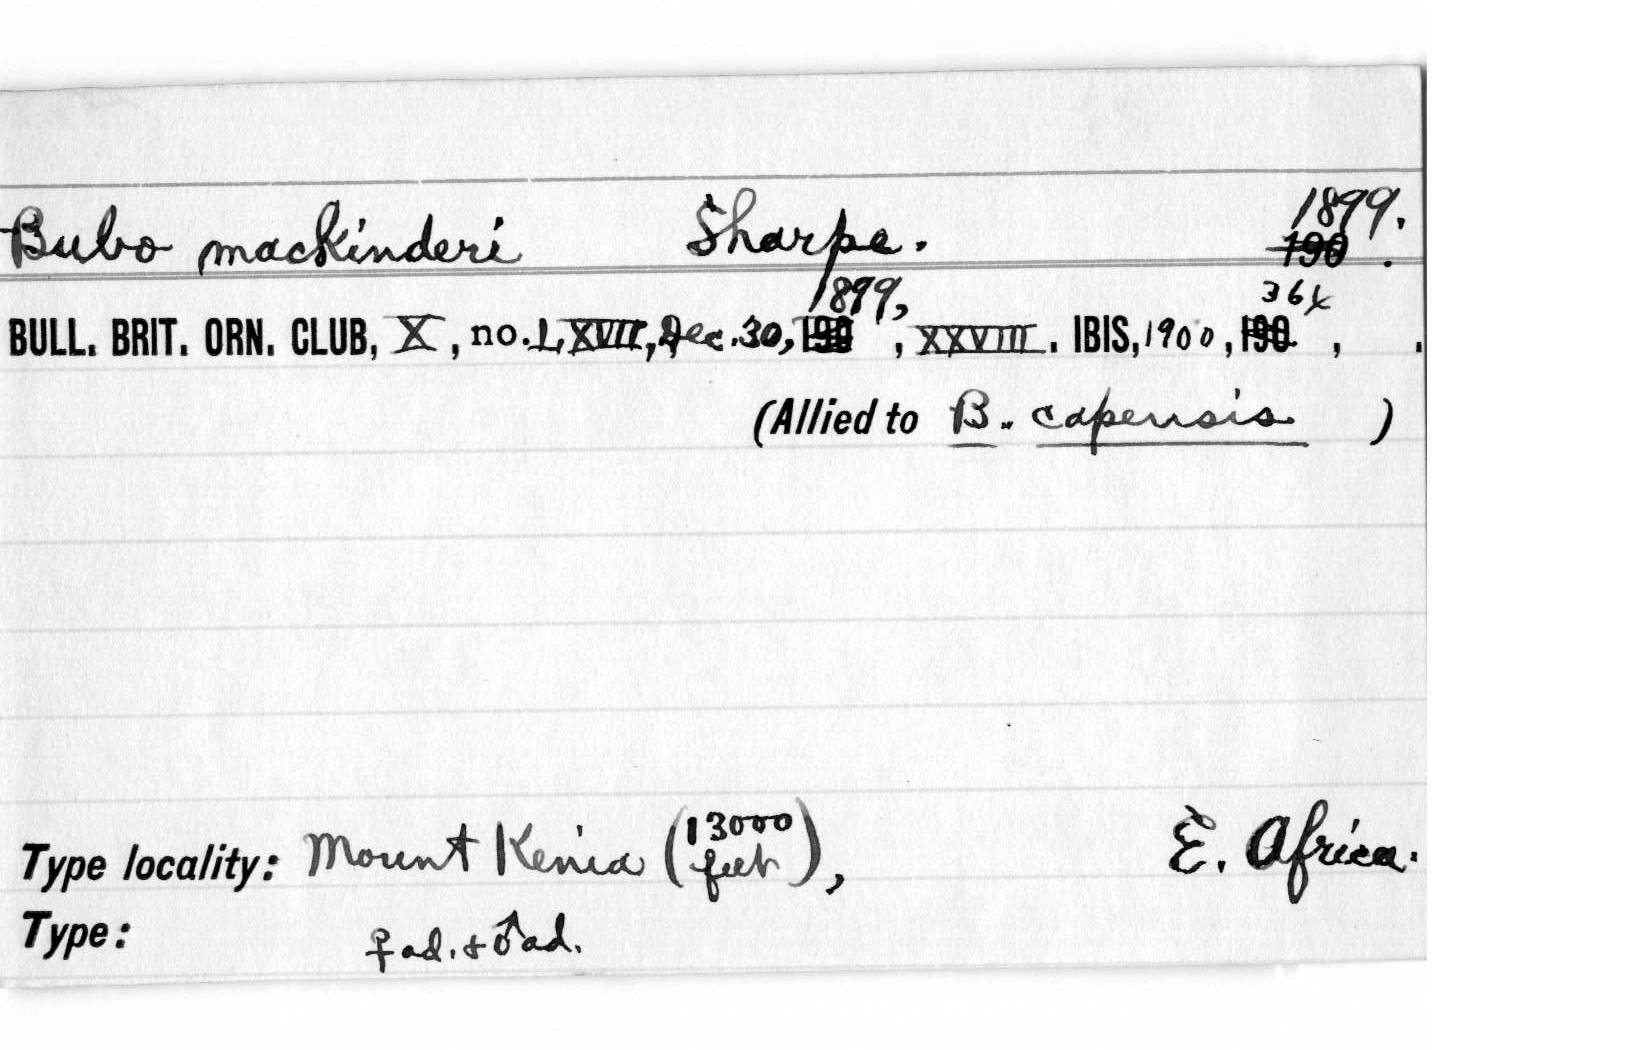 Bubo mackinderi Sharpe. 1899.
190 .
1899, 364
BULL. BRIT. ORN. CLUB, X, no. LXVII, Dec. 30, 190 , XXVIII. IBIS, 1900, 190 , .
(Allied to B. capensis )
Type locality: Mount Kenia (13000 feet), E. Africa.
Type: ♀ ad. + ♂ ad.